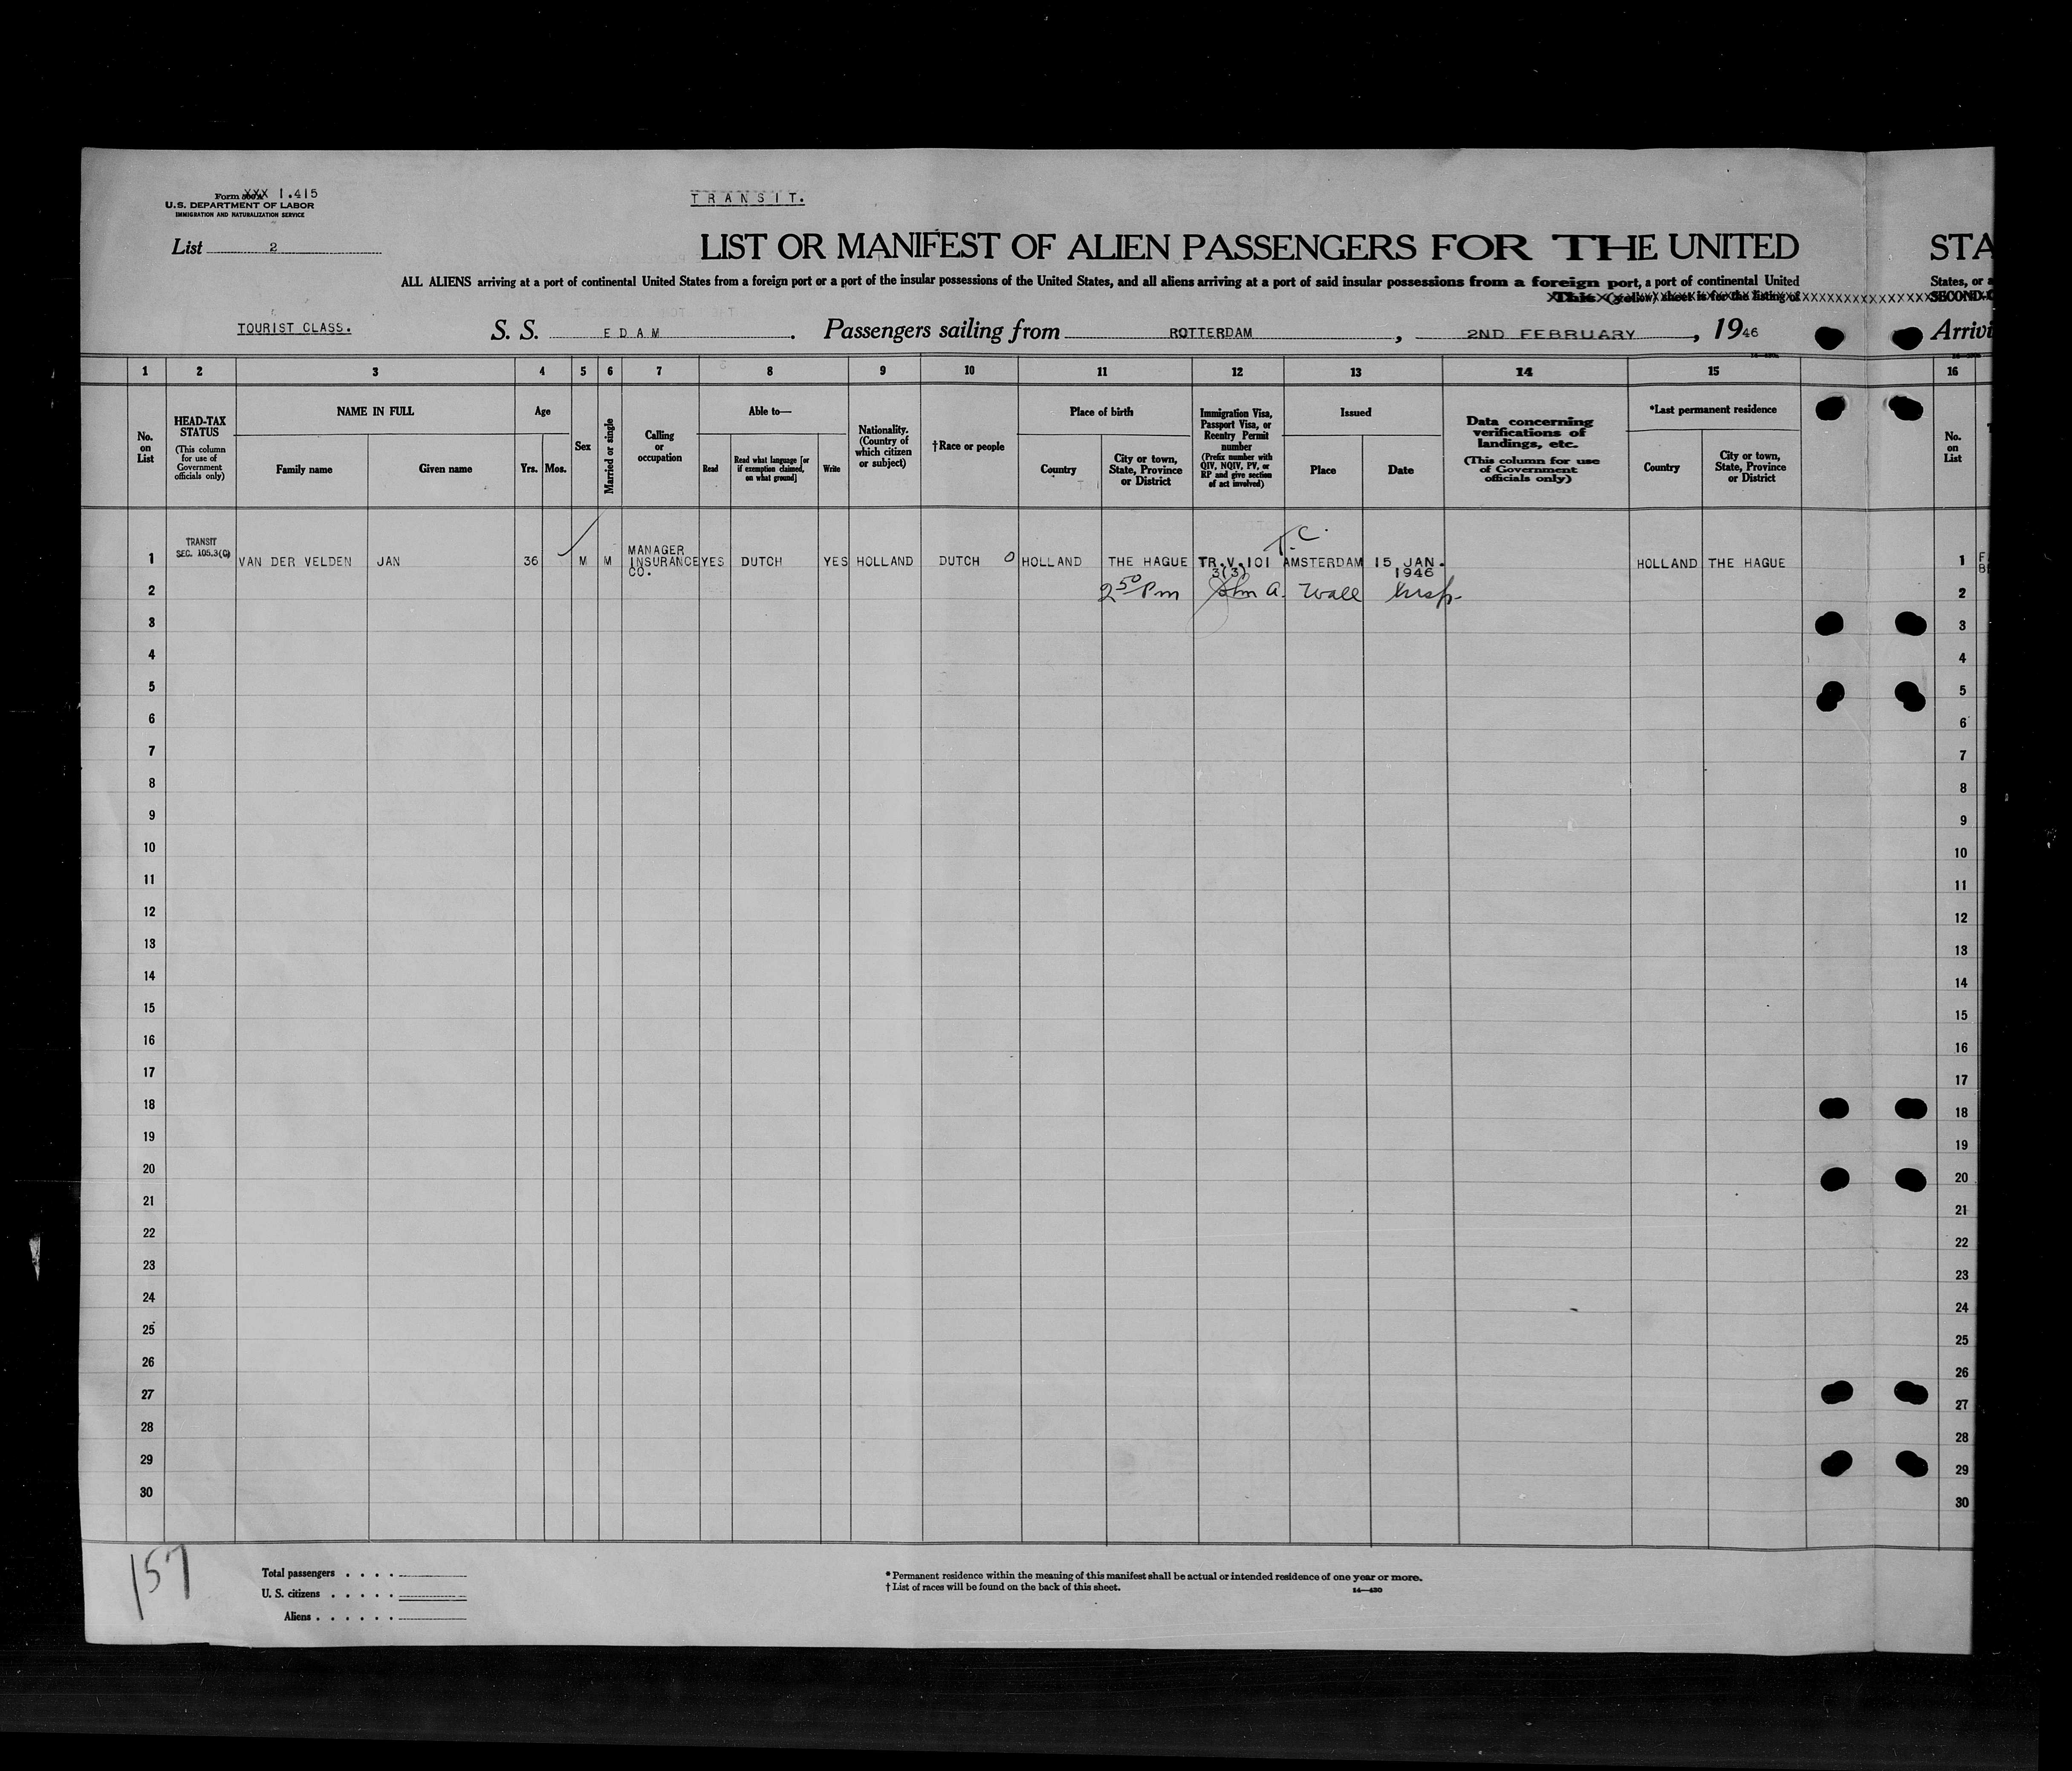 Form XXX 1.415
U.S. DEPARTMENT OF LABOR
IMMIGRATION AND NATURALIZATION SERVICE
TRANSIT.
List 2
LIST OR MANIFEST OF ALIEN PASSENGERS FOR THE UNITED STA
ALL ALIENS arriving at a port of continental United States from a foreign port or a port of the insular possessions of the United States, and all aliens arriving at a port of said insular possessions from a foreign port, a port of continental United States, or a
This (yellow) sheet is for the listing of SECOND-C
TOURIST CLASS. S. S. EDAM. Passengers sailing from ROTTERDAM, 2ND FEBRUARY, 1946 Arrivi
1 2 3 4 5 6 7 8 9 10 11 12 13 14 15 16
No. on List
HEAD-TAX STATUS
(This column for use of Government officials only)
NAME IN FULL
Family name
Given name
Age
Yrs. Mos.
Sex
Married or single
Calling or occupation
Able to—
Read
Read what language [or if exemption claimed, on what ground]
Write
Nationality. (Country of which citizen or subject)
†Race or people
Place of birth
Country
City or town, State, Province or District
Immigration Visa, Passport Visa, or Reentry Permit number
(Prefix number with QIV, NQIV, PV, or RP and give section of act involved)
Issued
Place
Date
Data concerning verifications of landings, etc.
(This column for use of Government officials only)
*Last permanent residence
Country
City or town, State, Province or District
No. on List
T.C.
1 TRANSIT SEC. 105.3(C) VAN DER VELDEN JAN 36 M M MANAGER INSURANCE CO. YES DUTCH YES HOLLAND DUTCH O HOLLAND THE HAGUE TR.V.101 3(3) AMSTERDAM 15 JAN. 1946 HOLLAND THE HAGUE 1
2 2 50 Pm John A. Wall Insp. 2
3 3
4 4
5 5
6 6
7 7
8 8
9 9
10 10
11 11
12 12
13 13
14 14
15 15
16 16
17 17
18 18
19 19
20 20
21 21
22 22
23 23
24 24
25 25
26 26
27 27
28 28
29 29
30 30
157
Total passengers
U. S. citizens
Aliens
* Permanent residence within the meaning of this manifest shall be actual or intended residence of one year or more.
† List of races will be found on the back of this sheet.
14—430